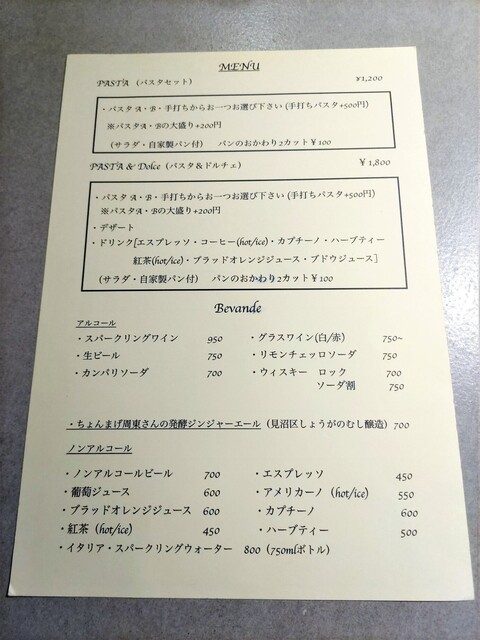 MENU
PASTA (パスタセット) ¥1,200
・パスタA・B・手打ちからお一つお選び下さい(手打ちパスタ+500円)
※パスタA・Bの大盛り+200円
(サラダ・自家製パン付) パンのおかわり2カット¥100
PASTA & Dolce (パスタ&ドルチェ) ¥1,800
・パスタA・B・手打ちからお一つお選び下さい(手打ちパスタ+500円)
※パスタA・Bの大盛り+200円
・デザート
・ドリンク[エスプレッソ・コーヒー(hot/ice)・カプチーノ・ハーブティー
紅茶(hot/ice)・ブラッドオレンジジュース・ブドウジュース]
(サラダ・自家製パン付) パンのおかわり2カット¥100
Bevande
アルコール
・スパークリングワイン 950 ・グラスワイン(白/赤) 750~
・生ビール 750 ・リモンチェッロソーダ 750
・カンパリソーダ 700 ・ウィスキー ロック 700
ソーダ割 750
・ちょんまげ周東さんの発酵ジンジャーエール (見沼区しょうがのむし醸造) 700
ノンアルコール
・ノンアルコールビール 700 ・エスプレッソ 450
・葡萄ジュース 600 ・アメリカーノ (hot/ice) 550
・ブラッドオレンジジュース 600 ・カプチーノ 600
・紅茶 (hot/ice) 450 ・ハーブティー 500
・イタリア・スパークリングウォーター 800 (750mlボトル)